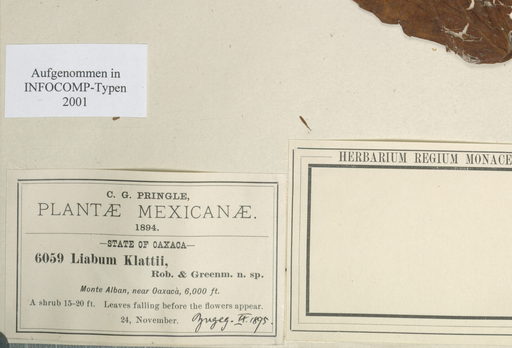 Aufgenommen in
INFOCOMP-Typen
2001
HERBARIUM REGIUM MONACE
C. G. PRINGLE,
PLANTÆ MEXICANÆ.
1894.
—STATE OF OAXACA—
6059 Liabum Klattii,
Rob. & Greenm. n. sp.
Monte Alban, near Oaxacà, 6,000 ft.
A shrub 15-20 ft. Leaves falling before the flowers appear.
24, November. Zugeg. IX. 1895.